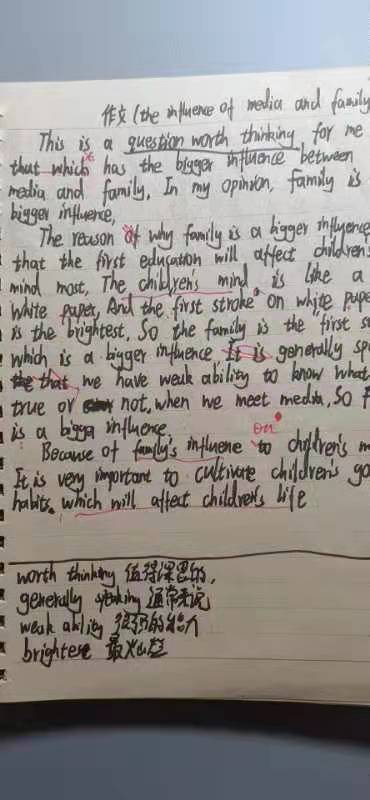 作文(the influence of media and family
This is a question worth thinking for me
that which has the bigger influence between
media and family. In my opinion, family is
bigger influence,
The reason of why family is a bigger influence
that the first education will affect children's
mind most, The children's mind, is like a
white paper, And the first stroke on white pape
is the brightest. So the family is the "first s
which is a bigger influence It is generally spe
that we have weak ability to know what
true or not, when we meet media, So f
is a bigga influence.
on
Because of family's influene to children's m
It is very important to cultivate children's go
habits, which will affect children's life
worth thinking 值得深思的,
generally speaking 通常来说
weak ability
brightest